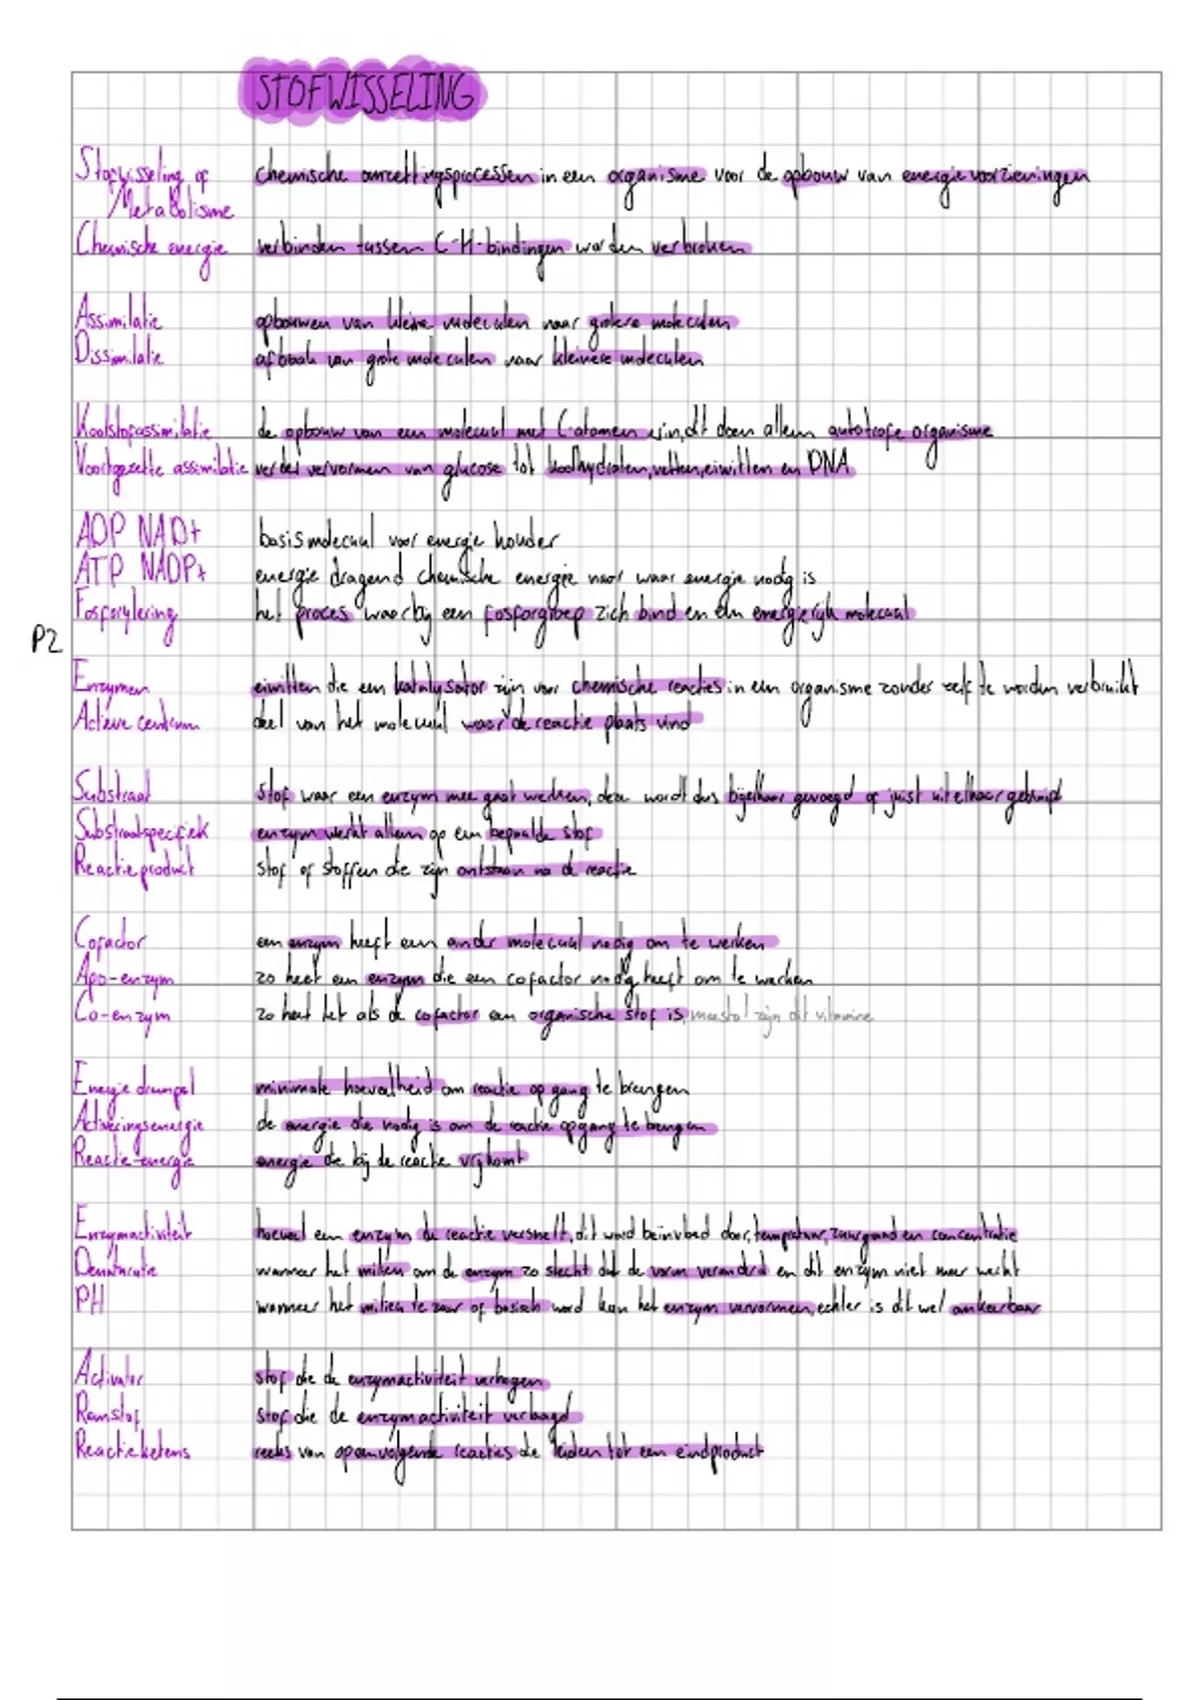 STOFWISSELING
Stofwisseling of chemische omzettingsprocessen in een organisme voor de opbouw van energievoorzieningen
Metabolisme
Chemische energie verbinden tussen C-H-bindingen worden verbroken
Assimilatie opbouwen van kleine moleculen naar grotere moleculen
Dissimilatie afbraak van grote moleculen naar kleinere moleculen
Koolstofassimilatie de opbouw van een molecuul met C-atomen erin, dit doen alleen autotrofe organisme
Voortgezette assimilatie verder vervormen van glucose tot koolhydraten, vetten, eiwitten en DNA
ADP NAD+ basismolecuul voor energie houder
ATP NADP+ energie dragend chemische energie naar waar energie nodig is
Fosforylering het proces waarbij een fosforgroep zich bind en een energierijk molecuul
P2
Enzymen eiwitten die een katalysator zijn voor chemische reacties in een organisme zonder zelf te worden verbruikt
Actieve centrum deel van het molecuul waar de reactie plaats vind
Substraat stof waar een enzym mee gaat werken, deze wordt dus bijelkaar gevoegd of juist uit elkaar geknipt
Substraatspecifiek enzym werkt alleen op een bepaalde stof
Reactieproduct stof of stoffen die zijn ontstaan na de reactie
Cofactor een enzym heeft een ander molecuul nodig om te werken
Apo-enzym zo heet een enzym die een cofactor nodig heeft om te werken
Co-enzym zo heet het als de cofactor een organische stof is, meestal zijn dit vitamine
Energie drempel minimale hoeveelheid om reactie op gang te brengen
Activeringsenergie de energie die nodig is om de reactie op gang te brengen
Reactie-energie energie die bij de reactie vrijkomt
Enzymactiviteit hoeveel een enzym de reactie versnelt, dit word beinvloed door, temperatuur, zuurgraad en concentratie
Denaturatie wanneer het milieu om de enzym zo slecht dat de vorm veranderd en dit enzym niet meer werkt
PH wanneer het milieu te zuur of basisch word kan het enzym vervormen, echter is dit wel omkeerbaar
Activator stof die de enzymactiviteit verhogen
Remstof stof die de enzymactiviteit verlaagd
Reactieketens reeks van opeenvolgende reacties die leiden tot een eindproduct